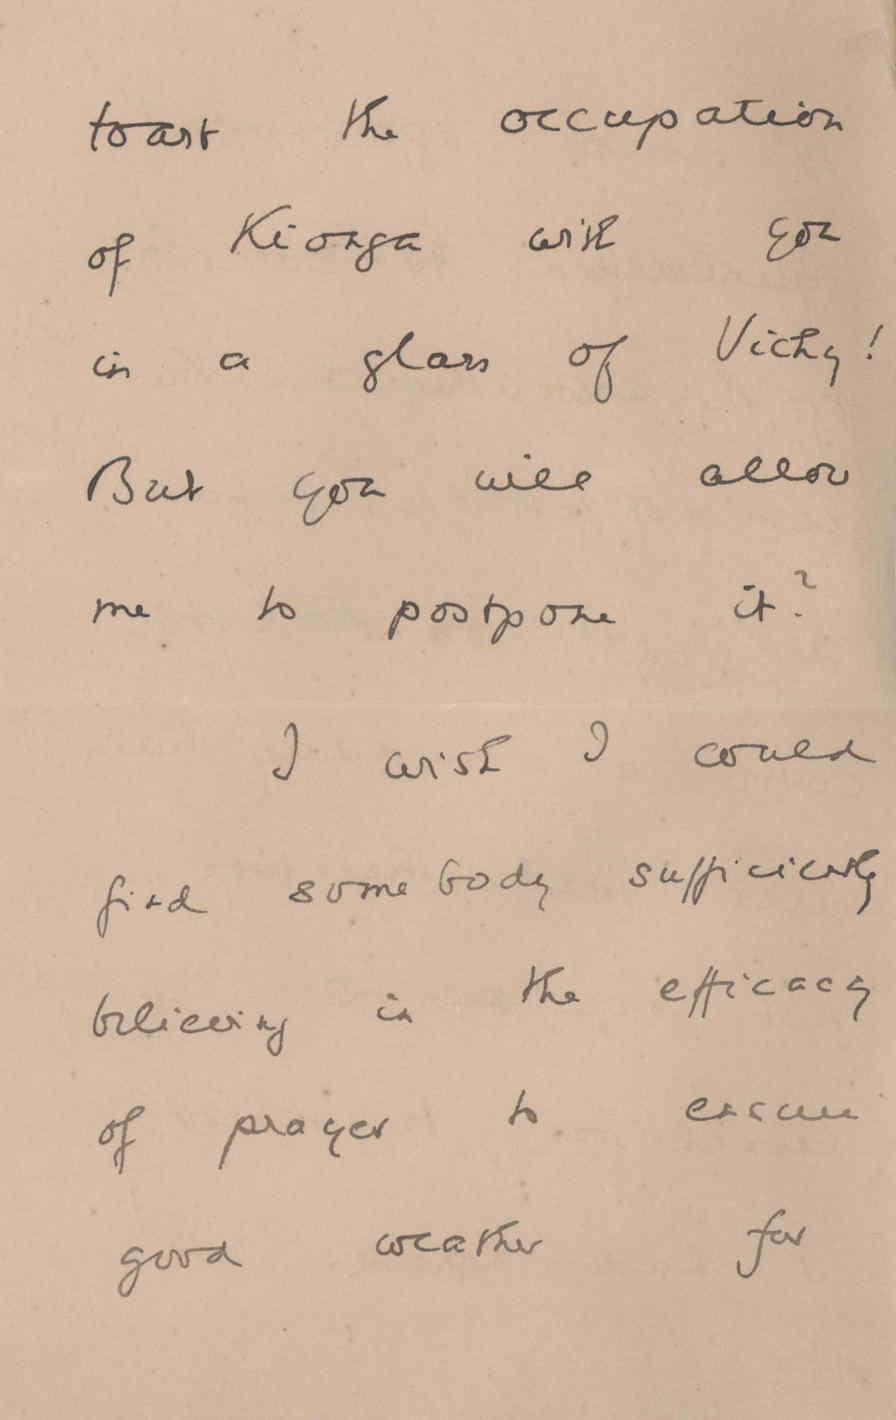 toast the occupation
of Kionga with you
in a glass of Vichy!
But you will allow
me to postpone it?
I wish I could
find somebody sufficiently
believing in the efficacy
of prayer to ensure
good weather for